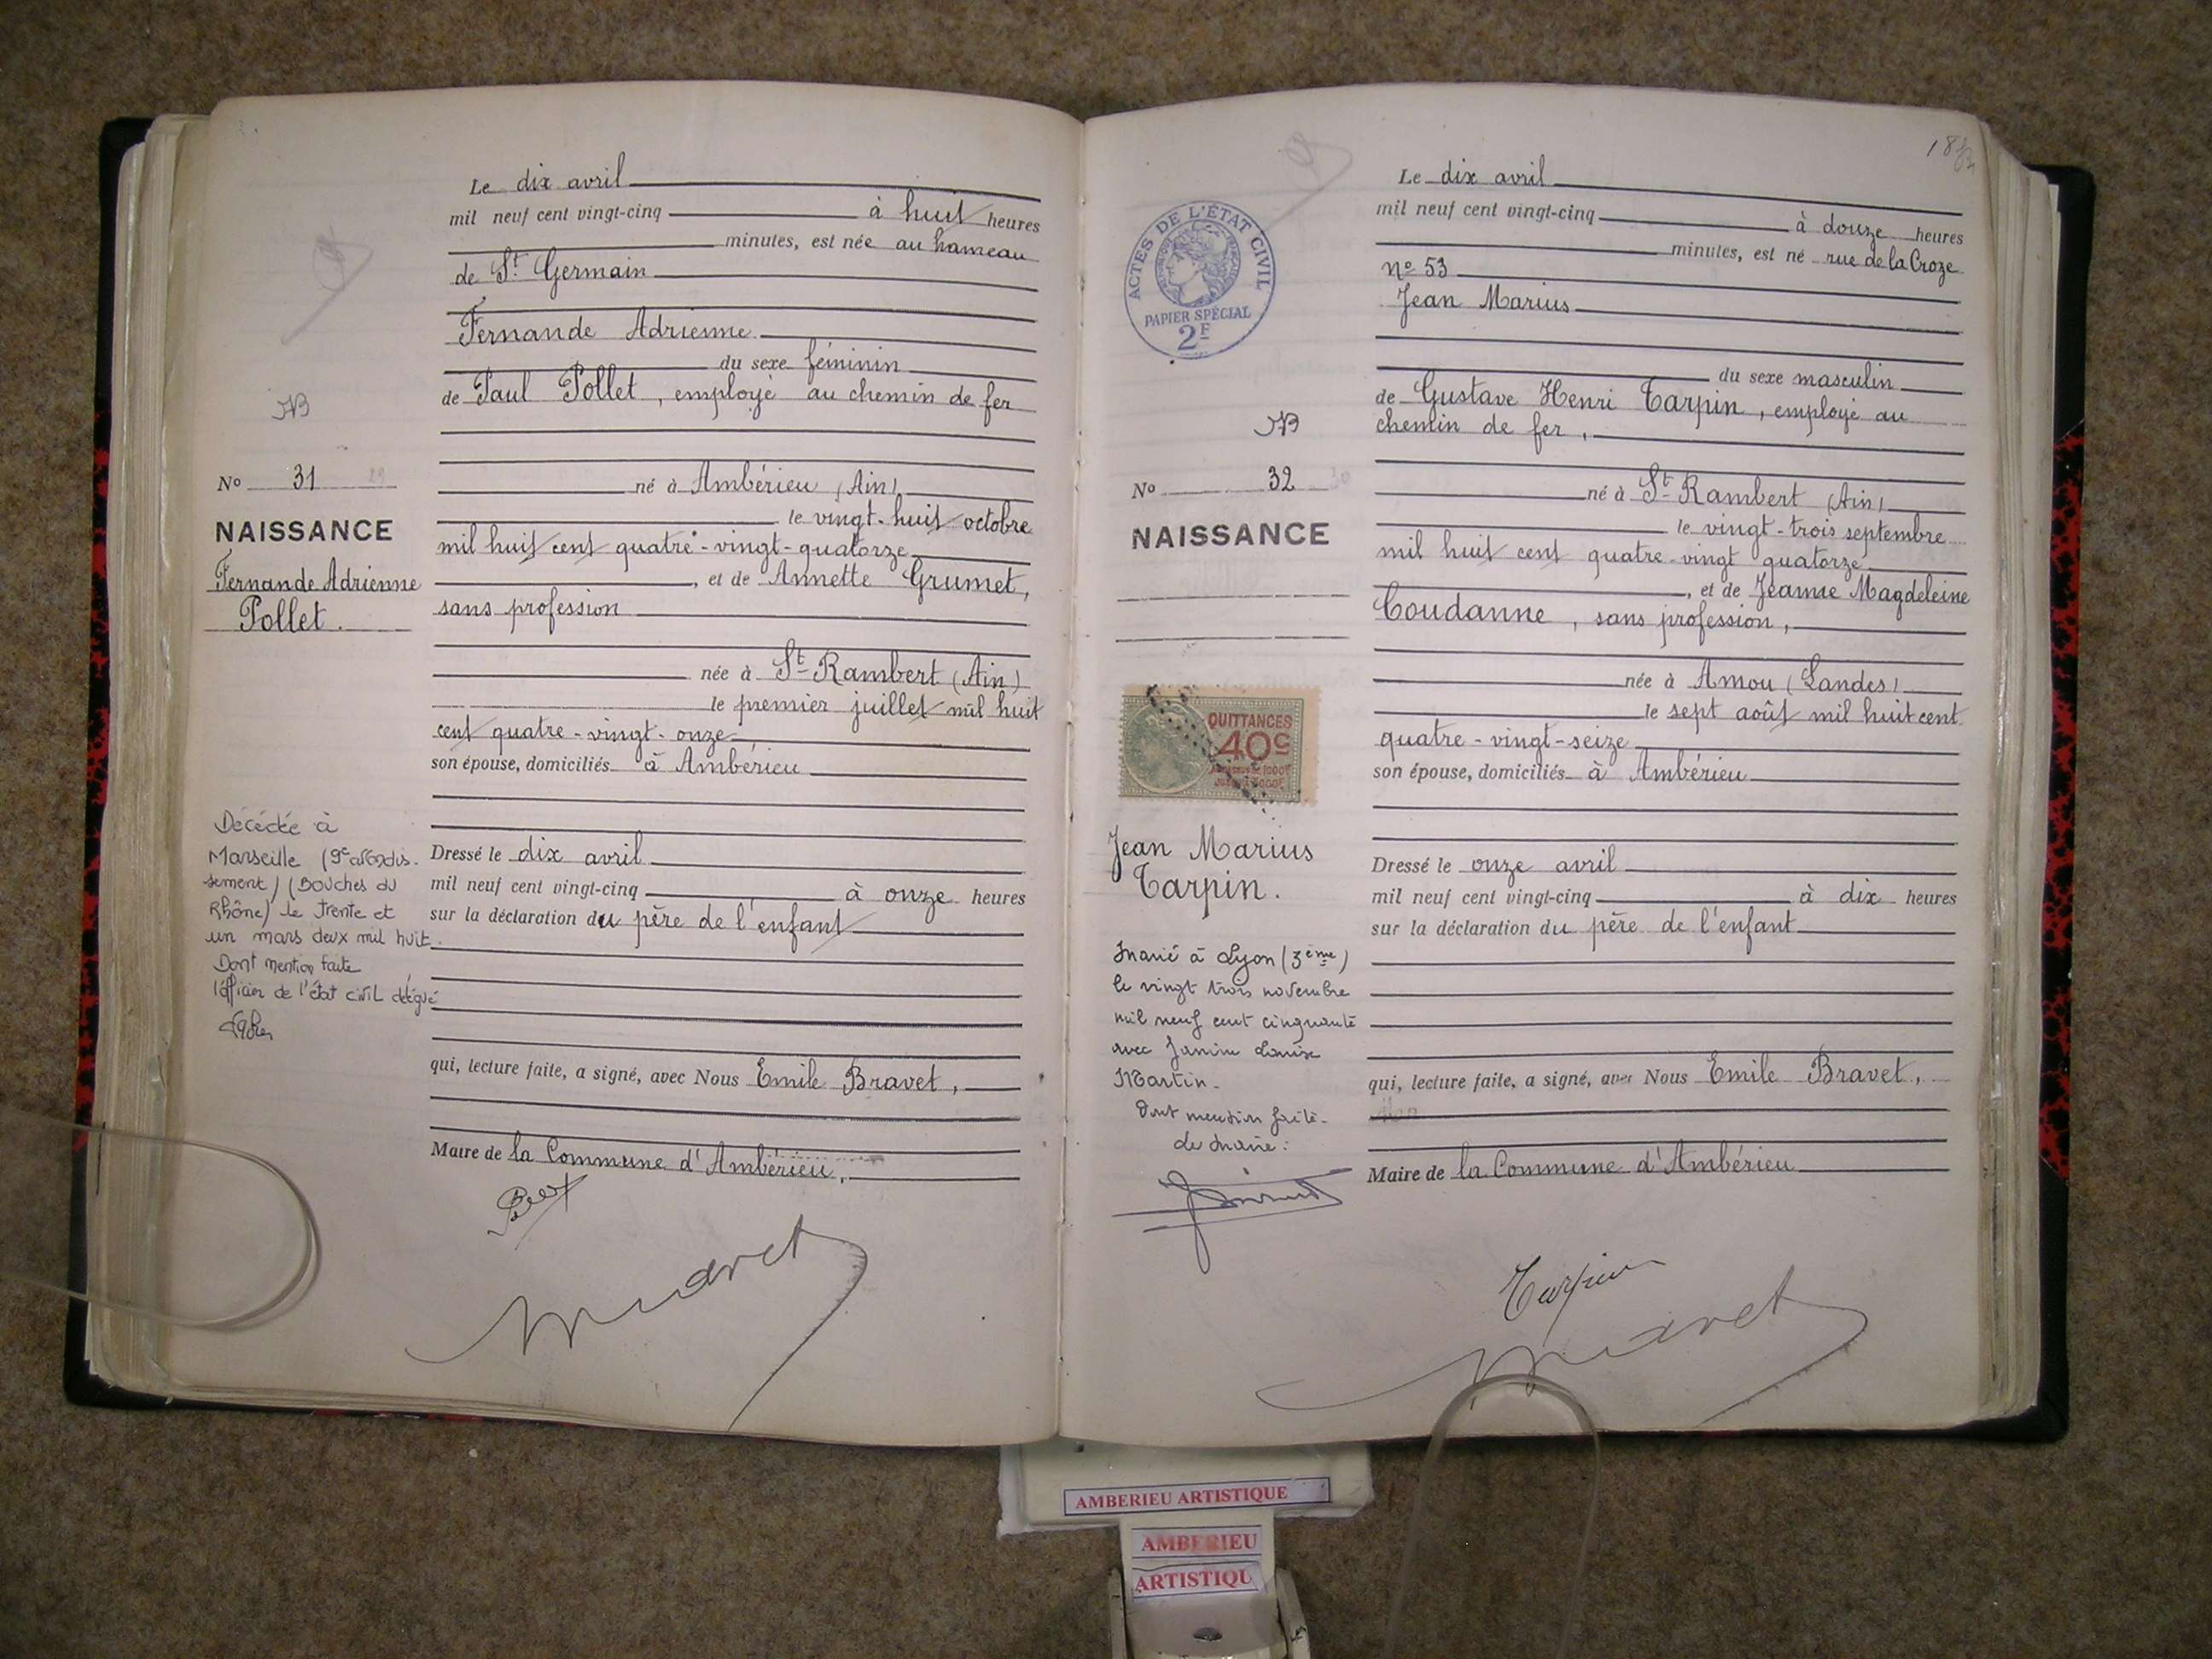 Le dix avril
mil neuf cent vingt-cinq à huit heures
minutes, est née au hameau
de St Germain
Fernande Adrienne
du sexe féminin
de Paul Pollet, employé au chemin de fer
né à Ambérieu (Ain)
le vingt-huit octobre
mil huit cent quatre-vingt-quatorze
, et de Annette Grumet,
sans profession
née à St Rambert (Ain)
le premier juillet mil huit
cent quatre-vingt-onze
son épouse, domiciliés à Ambérieu
Dressé le dix avril
mil neuf cent vingt-cinq à onze heures
sur la déclaration du père de l'enfant
qui, lecture faite, a signé, avec Nous Emile Bravet,
Maire de la Commune d'Ambérieu,
No 31
NAISSANCE
Fernande Adrienne
Pollet.
Décédée à
Marseille (9e arrondis-
sement) (Bouches du
Rhône) le trente et
un mars deux mil huit.
Dont mention faite
l'officier de l'état civil délégué
Le dix avril
mil neuf cent vingt-cinq à douze heures
minutes, est né rue de la Croze
no 53
Jean Marius
du sexe masculin
de Gustave Henri Tarpin, employé au
chemin de fer,
né à St Rambert (Ain)
le vingt-trois septembre
mil huit cent quatre-vingt quatorze
, et de Jeanne Magdeleine
Coudanne, sans profession,
née à Amou (Landes)
le sept août mil huit cent
quatre-vingt-seize
son épouse, domiciliés à Ambérieu
Dressé le onze avril
mil neuf cent vingt-cinq à dix heures
sur la déclaration du père de l'enfant
qui, lecture faite, a signé, avec Nous Emile Bravet,
Maire de la Commune d'Ambérieu
Tarpin
ACTES DE L'ÉTAT CIVIL
PAPIER SPÉCIAL
2F
No 32
NAISSANCE
QUITTANCES
40c
Jean Marius
Tarpin.
Marié à Lyon (3ème)
le vingt trois novembre
mil neuf cent cinquante
avec Janine Louise
Martin.
Dont mention faite.
Le Maire:
AMBERIEU ARTISTIQUE
AMBERIEU
ARTISTIQU